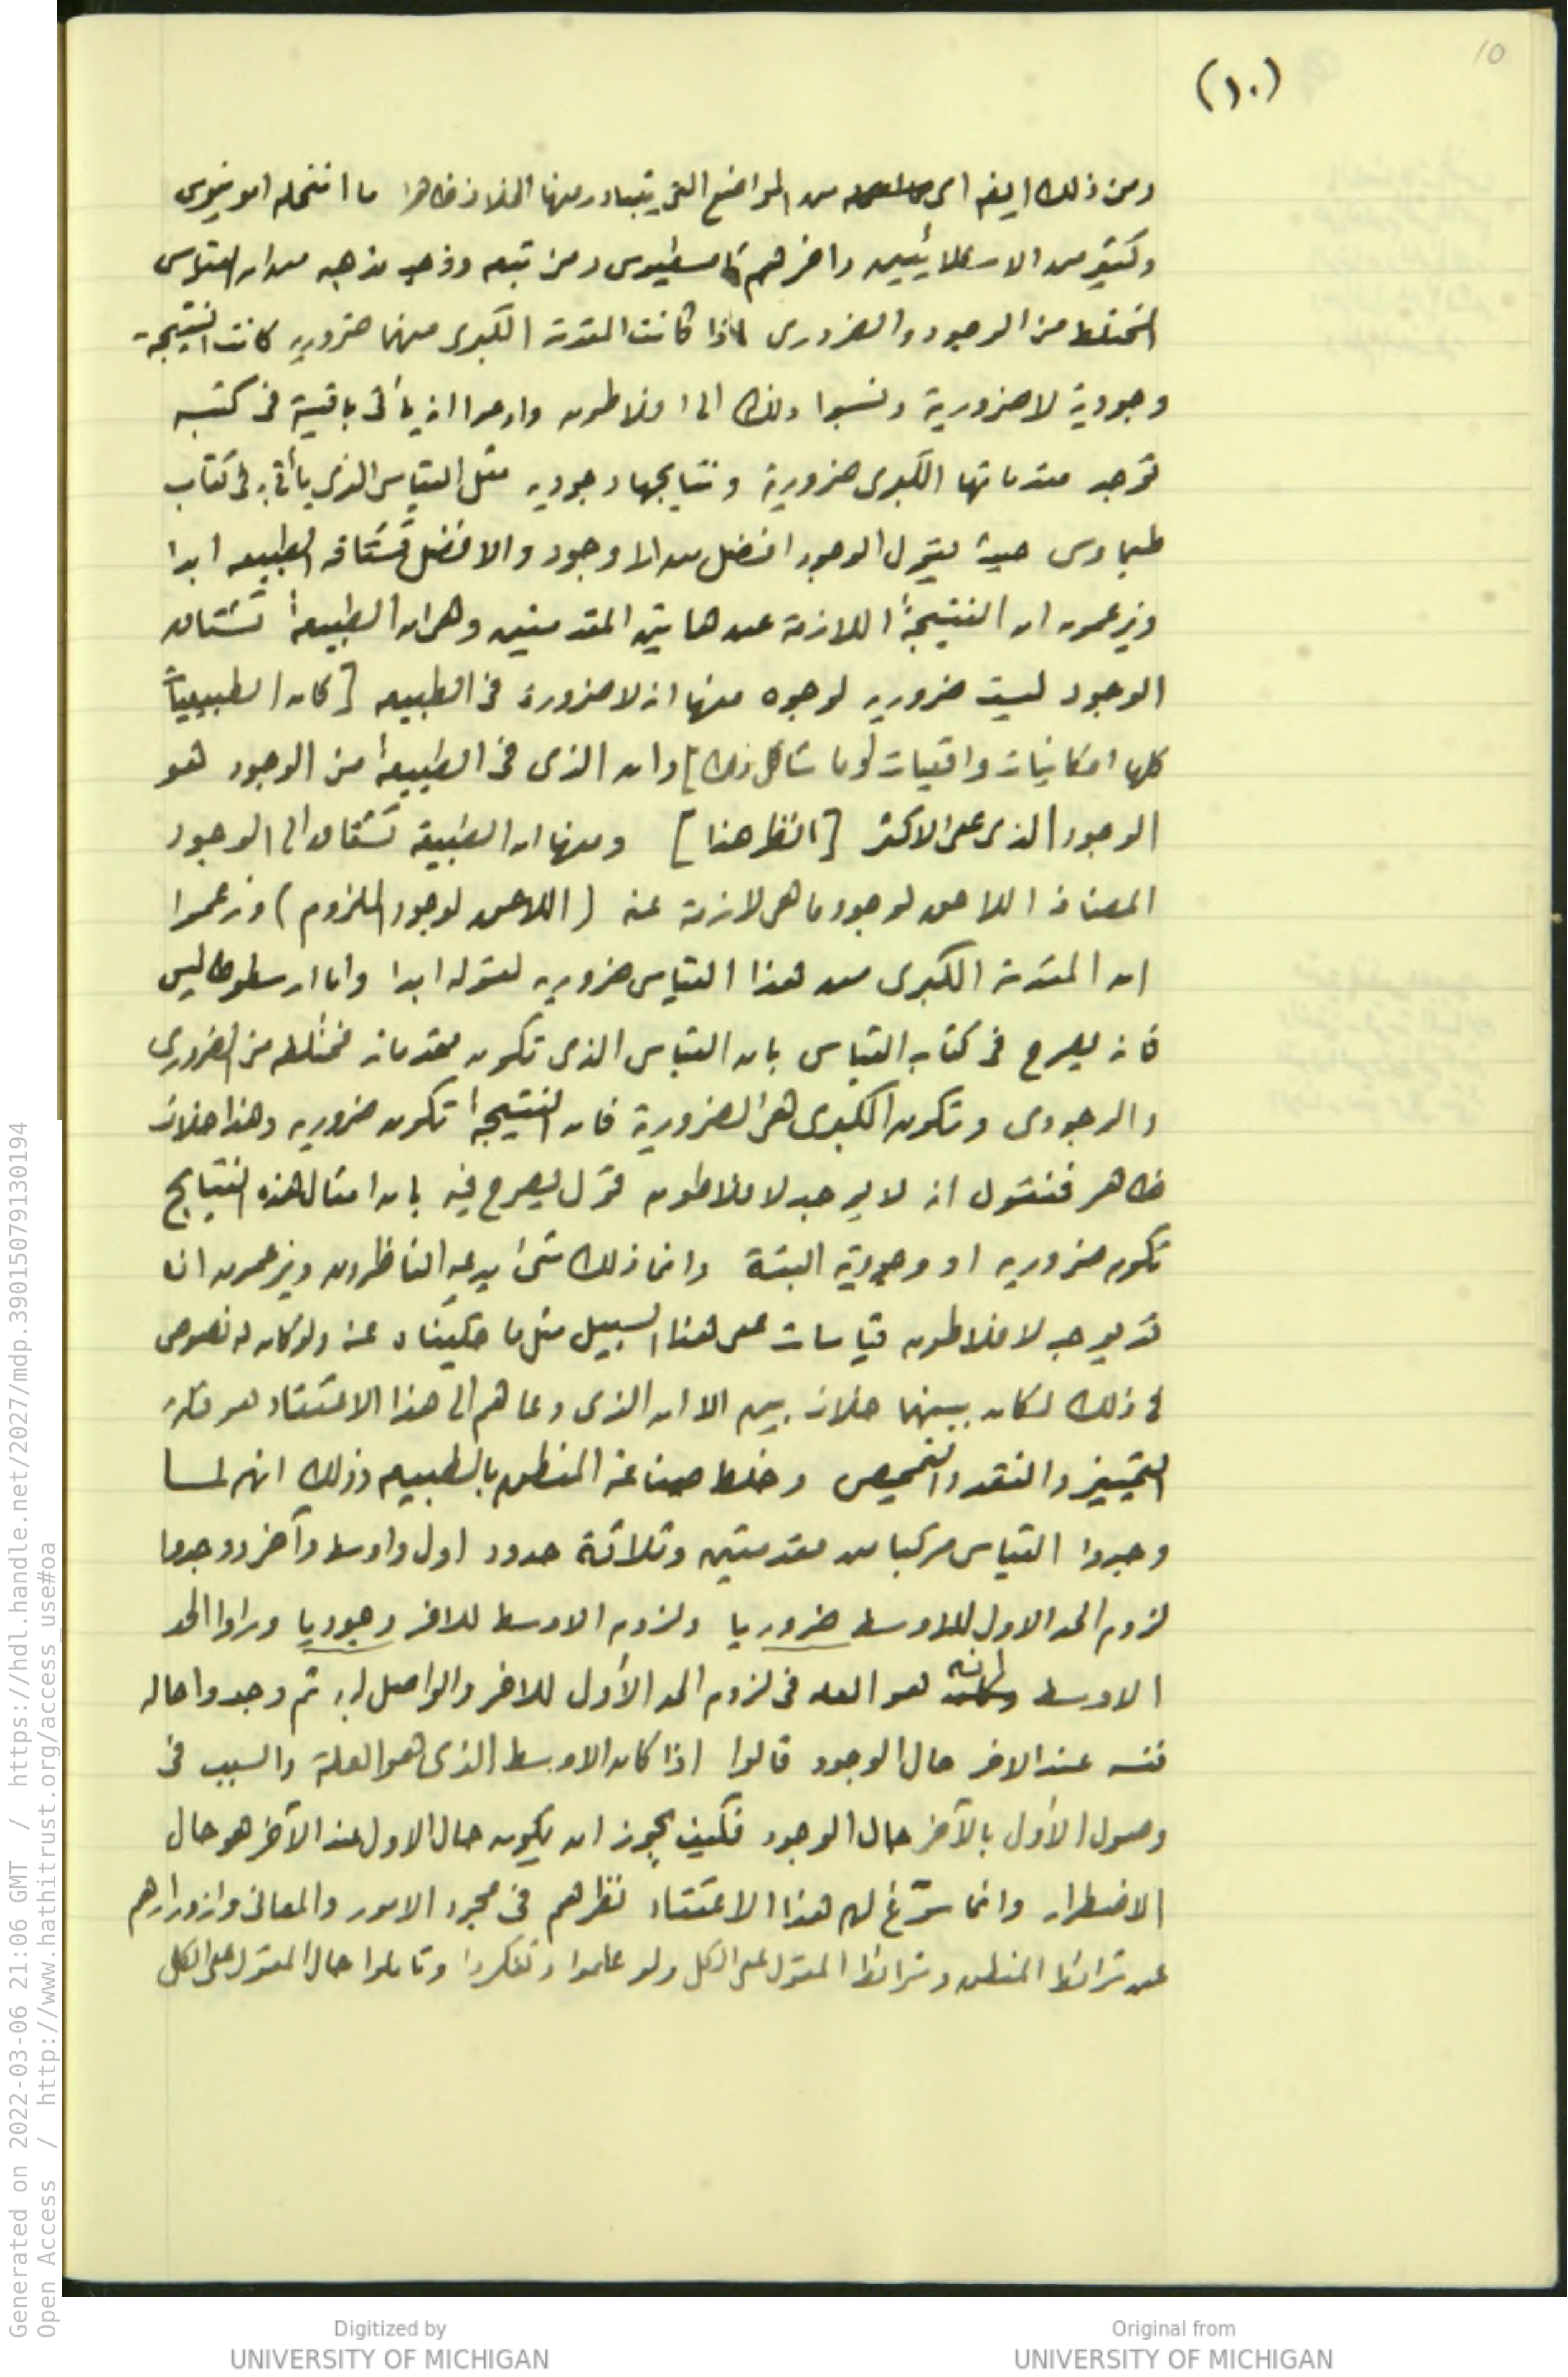 10
(١٠)
ومن ذلك ايضه اى من المواضع التى يتبادر منها الخلاف ظاهرا ما انتحله امونيوس
وكثير من الاسكلائيين واخرهم ثامسطيوس ومن تبعه وذهب مذهبه من ان القياس
المختلط من الوجود والضرورى اذا كانت المقدمة الكبرى منهما ضروريه كانت النتيجة
وجودية لا ضرورية ونسبوا ذلك الى افلاطون وادعوا انه يأتى باقيسة فى كتبه
توجد مقدماتها الكبرى ضرورية ونتايجها وجوديه مثل القياس الذى يأتى به فى كتاب
طيماوس حيث يقول الوجود افضل من الاوجود والافضل تشتاقه الطبيعه ابدا
ويزعمون ان النتيجة اللازمة عن هاتين المقدمتين وهى ان الطبيعة تشتاق
الوجود ليست ضروريه لوجوه منها انه لا ضرورة فى الطبيعه [كان الطبيعيات
كلها امكانيات واقعيات او ما شاكل ذلك] وان الذى فى الطبيعة من الوجود هو
الوجود الذى على الاكثر [انظر هنا] ومنها ان الطبيعة تشتاق الى الوجود
المضاف اللاحق لوجود ما هى لازمة عنه (اللاحق لوجود الملزوم) وزعموا
ان المقدمة الكبرى من هذا القياس ضروريه لقوله ابدا واما ارسطوطاليس
فانه يصرح فى كتابه القياس بان القياس الذى تكون مقدماته مختلطه من الضرورى
والوجودى وتكون الكبرى هى الضرورية فان النتيجة تكون ضروريه وهذا خلاف
ظاهر فنقول انه لا يوجد لافلاطون قول يصرح فيه بان امثال هذه النتايج
تكون ضروريه او وجودية البتة وانما ذلك شىء يدعيه الناظرون ويزعمون انه
قد يوجد لافلاطون قياسات على هذا السبيل مثل ما حكيناه عنه ولو كان له نصوص
فى ذلك لكان بينهما خلاف بين الا ان الذى دعاهم الى هذا الاعتقاد هو قلة
التمييز والنقد والتمحيص وخلط صناعة المنطق بالطبيعه وذلك انهم لما
وجدوا القياس مركبا من مقدمتين وثلاثة حدود اول واوسط وآخر ووجدوا
لزوم الحد الاول للاوسط ضروريا ولزوم الاوسط للاخر وجوديا وراوا الحد
الاوسط كانه هو العله فى لزوم الحد الأول للاخر والواصل له به ثم وجدوا حاله
نفسه عند الاخر حال الوجود قالوا اذا كان الاوسط الذى هو العلة والسبب فى
وصول الأول بالآخر حال الوجود فكيف يجوز ان يكون حال الاول عند الآخر هو حال
الاضطرار وانما سوّغ لهم هذا الاعتقاد نظرهم فى مجرد الامور والمعانى وازورارهم
عن شرائط المنطق وشرائط المقول على الكل ولو علموا وتفكروا وتاملوا حال المقول على الكل
Generated on 2022-03-06 21:06 GMT / https://hdl.handle.net/2027/mdp.39015079130194
Open Access / http://www.hathitrust.org/access_use#oa
Digitized by
UNIVERSITY OF MICHIGAN
Original from
UNIVERSITY OF MICHIGAN